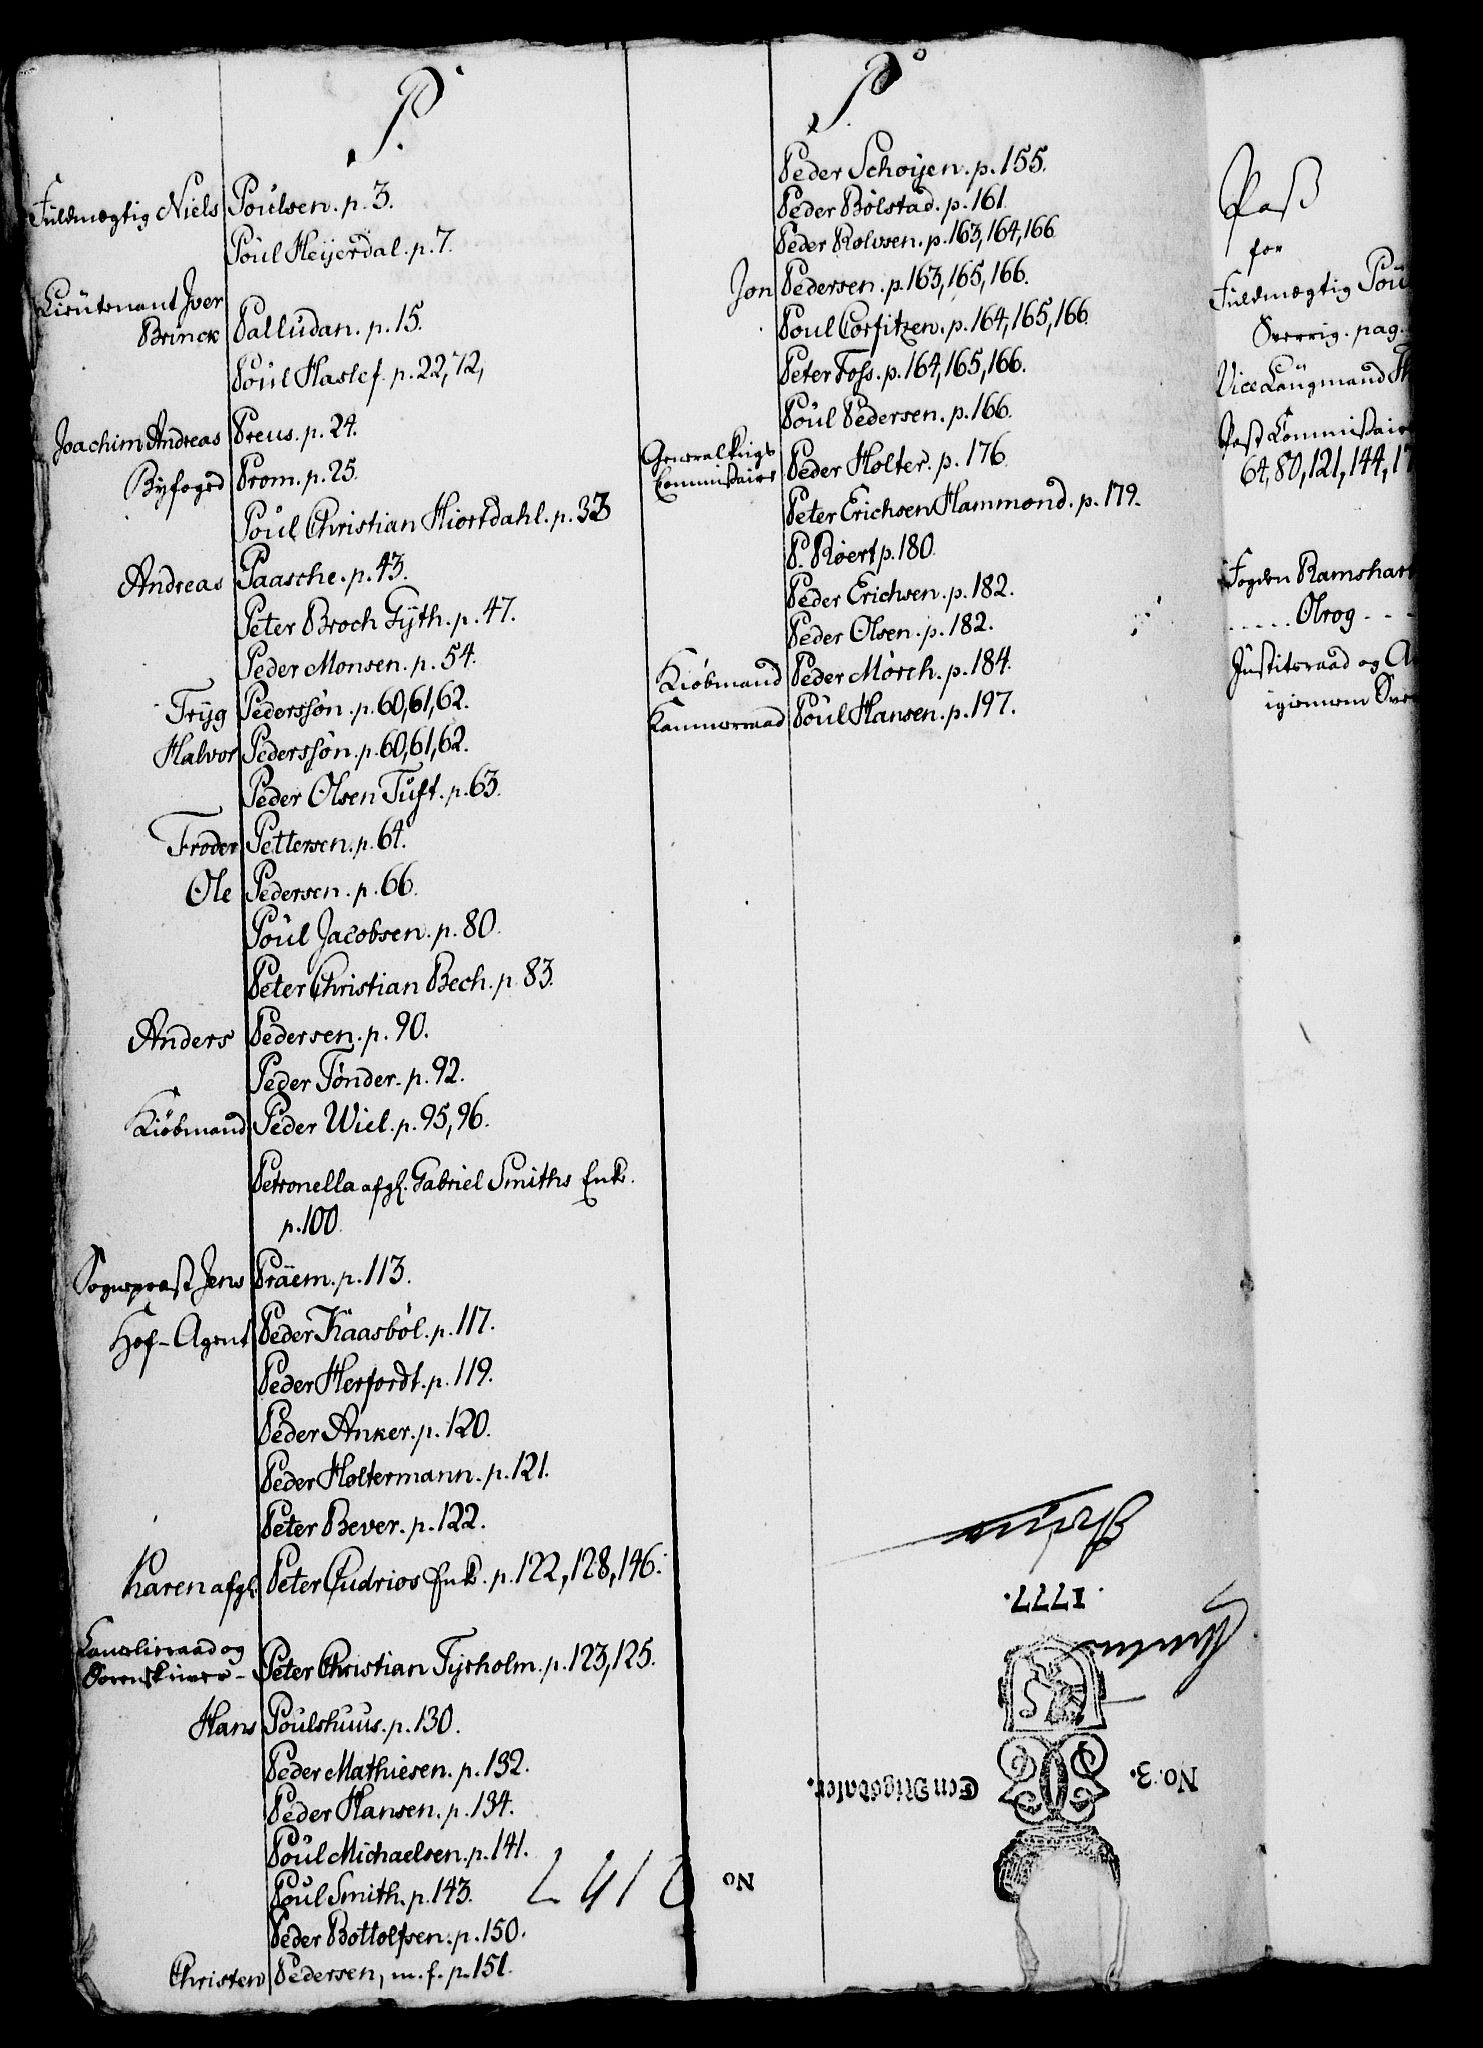 P.
Fuldmægtig Niels Poulsen. p. 3.
Poul Heyerdal. p. 7.
Lieutenant Iver
Brinck Palludan. p. 15.
Poul Haslef. p. 22, 72,
Joachim Andreas Preus. p. 24.
Byfoged Prom. p. 25.
Poul Christian Hiortdahl. p. 33
Andreas Paasche. p. 43.
Peter Broch Gyth. p. 47.
Peder Monsen. p. 54.
Tryg Pederssøn. p. 60, 61, 62.
Halvor Pederssøn. p. 60, 61, 62.
Peder Olsen Tuft. p. 63.
Froder Pettersen. p. 64.
Ole Pedersen. p. 66.
Poul Jacobsen. p. 80.
Peter Christian Bech. p. 83.
Anders Pedersen. p. 90.
Peder Tønder. p. 92.
Kiøbmand Peder Wiel. p. 95, 96.
Petronella afgl. Gabriel Smiths Enke.
p. 100.
Sognepræst Jens Präem. p. 113.
Hof-Agent Peder Kaasbøl. p. 117.
Peder Herfordt. p. 119.
Peder Anker. p. 120.
Peder Holtermann. p. 121.
Peter Bever. p. 122.
Karen afgl. Peter Cudrios Enke. p. 122, 128, 146.
Cancelieraad og
Sorenskriver - Peter Christian Tyrholm. p. 123, 125.
Hans Poulshuus. p. 130.
Peder Mathiesen. p. 132.
Peder Hansen. p. 134.
Poul Michaelsen. p. 141.
Poul Smith. p. 143.
Peder Bottolfsen. p. 150.
Christen Pedersen, m. f. p. 151.
P.
Peder Schøyen. p. 155.
Peder Bølstad. p. 161.
Peder Rolvsen. p. 163, 164, 166.
Jon Pedersen. p. 163, 165, 166.
Poul Corfitzen. p. 164, 165, 166.
Peter Foss. p. 164, 165, 166.
Poul Pedersen. p. 166.
Generalkrigs
Commissaire Peder Holter. p. 176.
Peter Erichsen Hammond. p. 179.
P. Røert p. 180.
Peder Erichsen. p. 182.
Peder Olsen. p. 182.
Kiøbmand Peder Mørch. p. 184.
Kammerraad Poul Hansen. p. 197.
1777.
No. 3.
Een Rigsdaler.
No
Pass
for
Fuldmægtig Pou
Sverrig. pag.
Vice Laugmand
Post Commissair
64, 80, 121, 144, 17
Fogden Ramshart
..... Olrog - -
Justitsraad og A
igiennem Sve